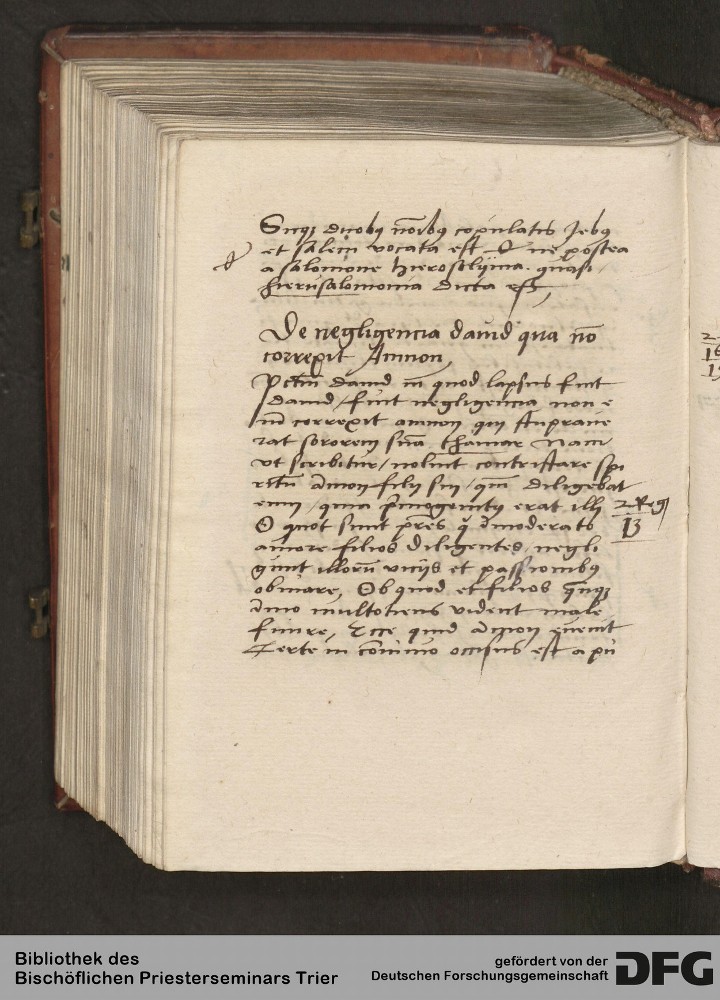 Sicq; duobꝯ nōibꝯ copulatis Jebꝯ
et Salem vocata est & postea
a Salomone hierosolyma. quasi
hierusalomonia dicta est,
De negligencia dauid qua nō
correpit Amnon,
Pctm̄ dauid in quod lapsus fuit
dauid, fuit negligencia non e
correxit amnon qui stuprauе
rat sororem suā thamar Nam
vt scribitur, noluit contristare spi
ritū Amon filij sui, qm̄ diligebat
eum, quia p̄mogenitꝯ erat illj
2 Reg
13
O quot sunt pr̄es q̄ īmoderato
amore filios diligentes, negli
gunt illorū vicijs et passionibꝯ
obuiare, Ob quod et filios
multotiens vident male
finire, Ecce quid Amnon euenit
Certe in conuiuio occisus est a
Bibliothek des
Bischöflichen Priesterseminars Trier
gefördert von der
Deutschen Forschungsgemeinschaft
DFG